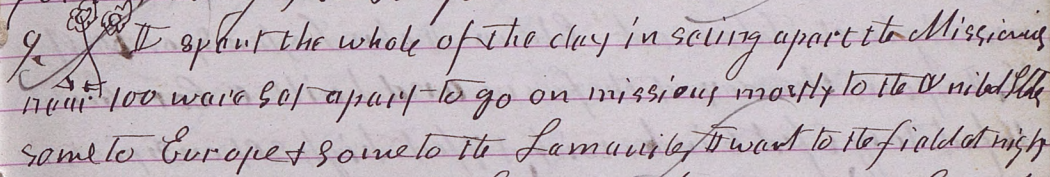 9. I spent the whole of the day in seting apart the Missionaries
near 100 ware Set apart to go on missions mostly to the United States
some to Europe & some to the Lamanites I want to the field at nigh